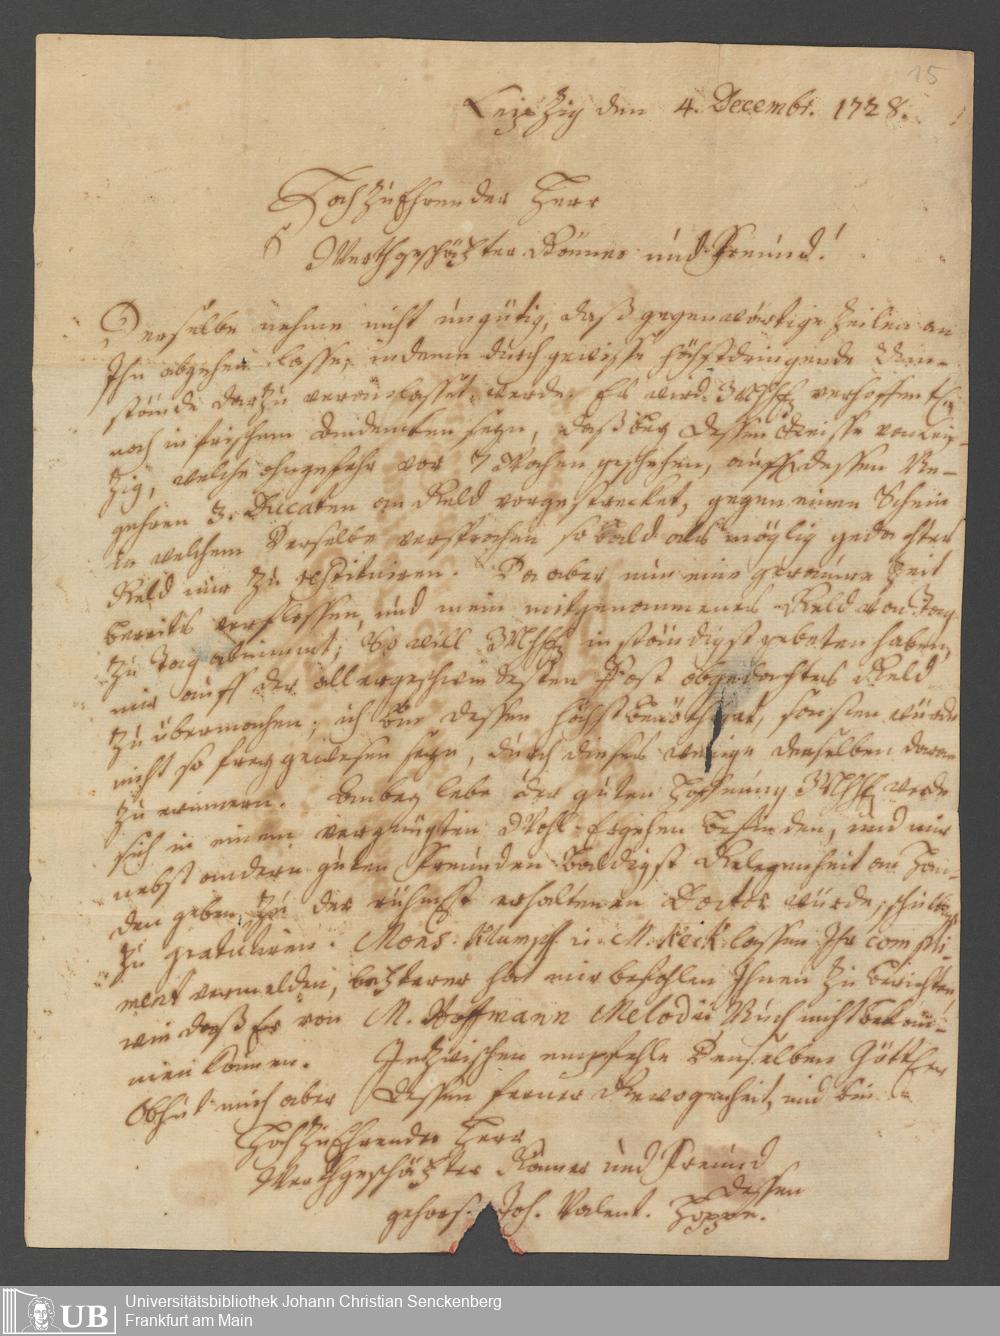 15
Leipzig den 4. Decembr. 1728.
HochzuEhrender Herr
Werthgeschäzter Gönner und Freund!
Derselbe nehme nicht ungütig, daß gegenwärtige Zeilen an
Ihn abgehen lasse, indeme durch gewisse höchstdringende Um-
stände darzu veranlasset werde. Es wird verhoffentl.
noch in frischem Andencken seyn, daß bey dessen Abreisse von Leip-
zig, welche ohngefehr vor 7 Wochen geschehen, auff dessen Be-
gehren 3. Ducaten an Geld vorgestrecket, gegen einen Schein
in welchem Derselbe versprochen so bald als möglig gedachtes
Geld mir zu restituiren. Da aber nun eine geraume Zeit
bereits verflossen, und mein mitgenommenes Geld von Tag
zu Tag abnimmt; So will inständigst gebeten haben,
mir auff der allergeschwindesten Post obgedachtes Geld
zu übermachen, ich bin dessen höchst benöthiget, sonsten würde
nicht so frey gewesen seyn, durch dieses wenige denselben daran
zu erinnern. Anbey lebe der guten Hoffnung werde
sich in einem vergnügten Wohl-Ergehen befinden, und mir
nebst andern guten Freunden baldigst Gelegenheit an Han-
den geben, zu der rühmlichst erhaltenen Doctor würde, schuldigst
zu gratuliren. Mons. Klumpf. u. M. Keck lassen Ihr Compli-
ment vermelden, letzterer hat mir befohlen Ihnen zu berichten
wie daß Er von M. Hoffmann Melodei Buch nicht bekom-
men können. Inzwischen empfehle Denselben Göttlicher
Obhut mich aber Dessen ferner Gewogenheit, und bin
HochzuEhrender Herr
Werthgeschäzter Gönner und Freund
Dessen
gehors. Joh. Valent. Hoppe.
UB
Universitätsbibliothek Johann Christian Senckenberg
Frankfurt am Main